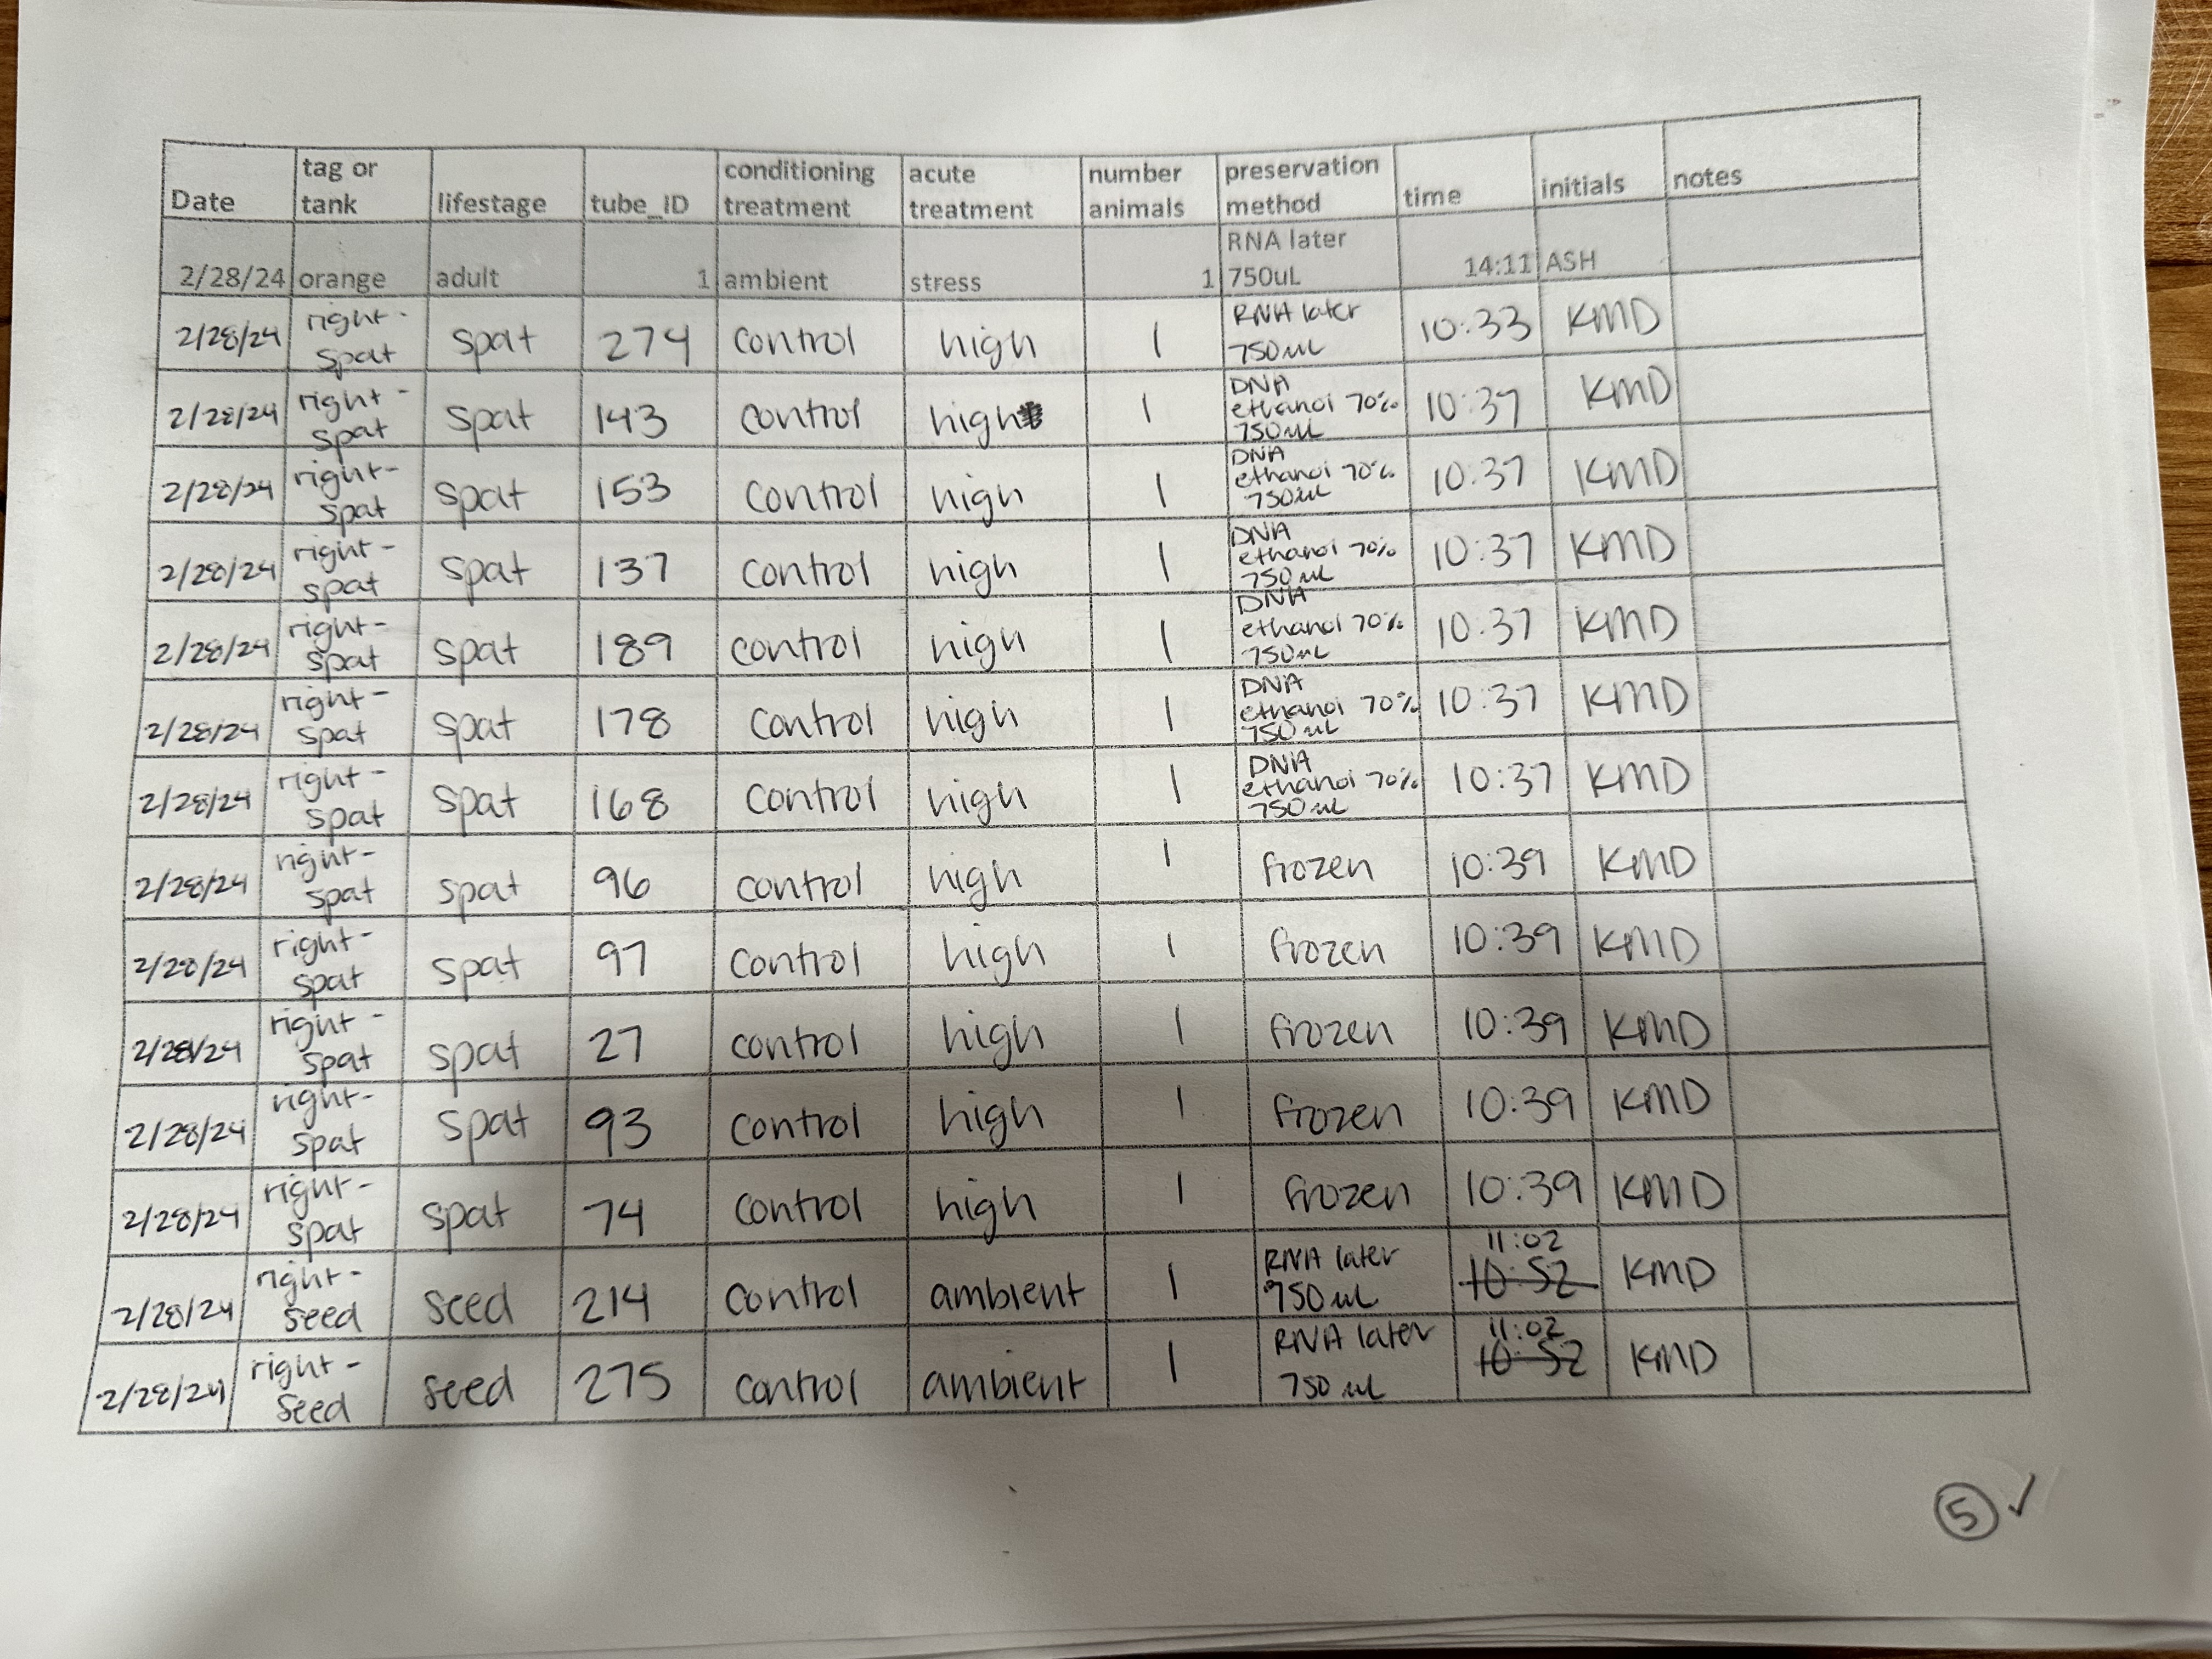 Date tag or tank lifestage tube_ID conditioning treatment acute treatment number animals preservation method time initials notes
2/28/24 orange adult 1 ambient stress 1 RNA later 750uL 14:11 ASH
2/28/24 right - spat spat 274 control high 1 RNA later 750uL 10:33 KMD
2/28/24 right - spat spat 143 control high 1 DNA ethanol 70% 750uL 10:37 KMD
2/28/24 right - spat spat 153 control high 1 DNA ethanol 70% 750uL 10:37 KMD
2/28/24 right - spat spat 137 control high 1 DNA ethanol 70% 750uL 10:37 KMD
2/28/24 right - spat spat 189 control high 1 DNA ethanol 70% 750uL 10:37 KMD
2/28/24 right - spat spat 178 control high 1 DNA ethanol 70% 750uL 10:37 KMD
2/28/24 right - spat spat 168 control high 1 DNA ethanol 70% 750uL 10:37 KMD
2/28/24 right - spat spat 96 control high 1 frozen 10:39 KMD
2/28/24 right - spat spat 97 control high 1 frozen 10:39 KMD
2/28/24 right - spat spat 27 control high 1 frozen 10:39 KMD
2/28/24 right - spat spat 93 control high 1 frozen 10:39 KMD
2/28/24 right - spat spat 74 control high 1 frozen 10:39 KMD
2/28/24 right - seed seed 214 control ambient 1 RNA later 750uL 11:02 10:52 KMD
2/28/24 right - seed seed 275 control ambient 1 RNA later 750uL 11:02 10:52 KMD
5